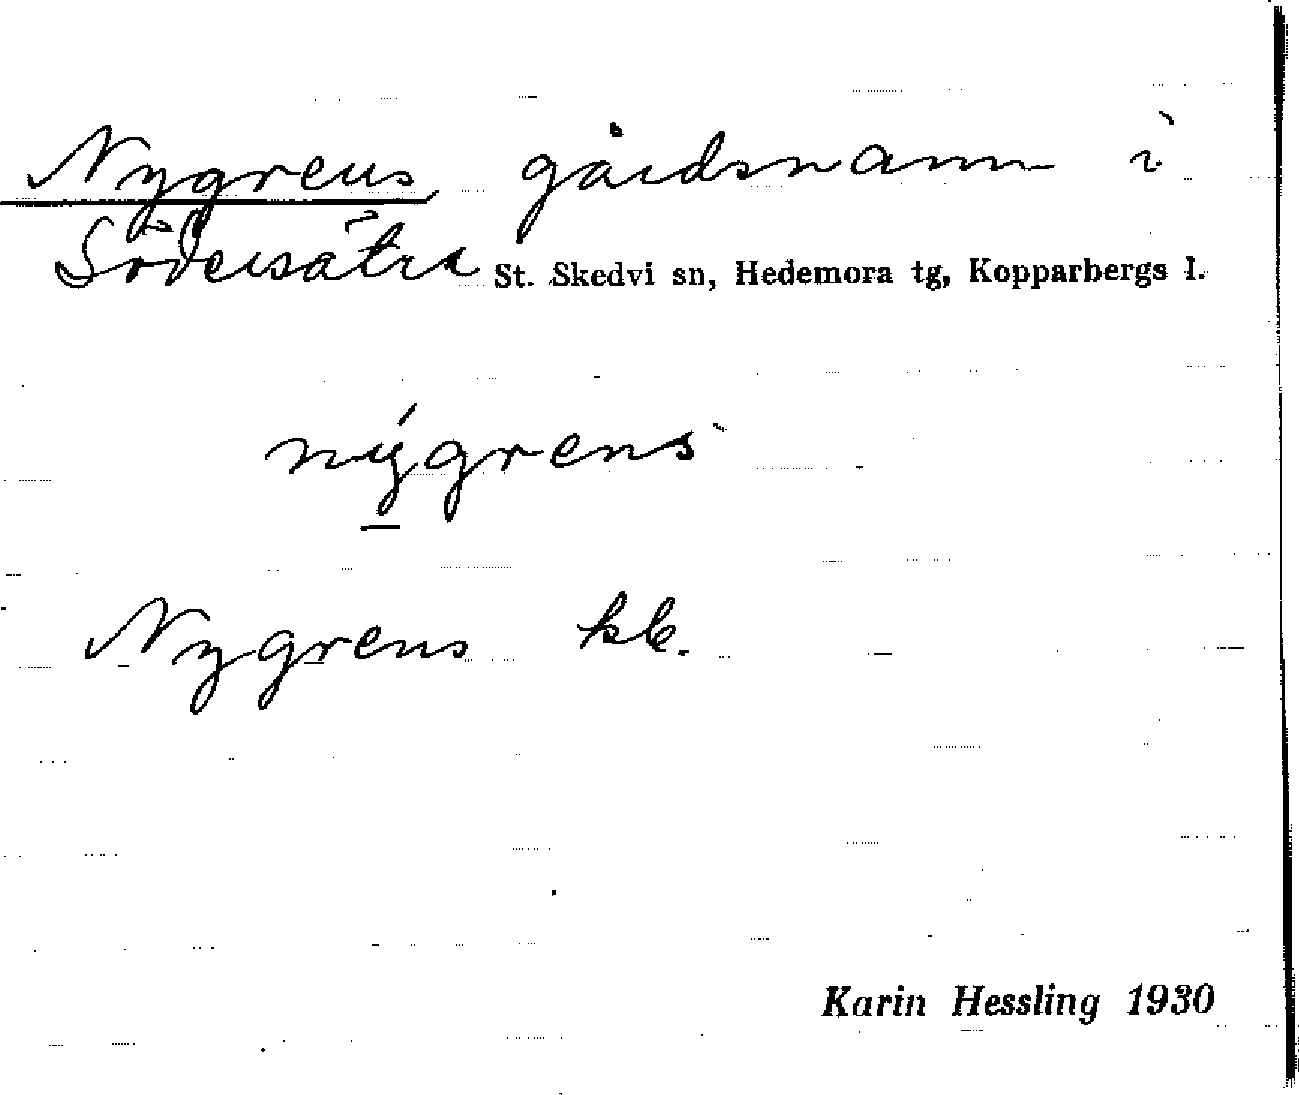 Nygrens gårdsnamn i
Södersätra St. Skedvi sn, Hedemora tg, Kopparbergs l.
nýgrens
Nygrens kb.
Karin Hessling 1930